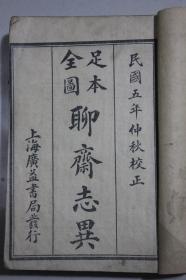 民國五年仲秋校正
足本
全圖
聊齋志異
上海廣益書局發行